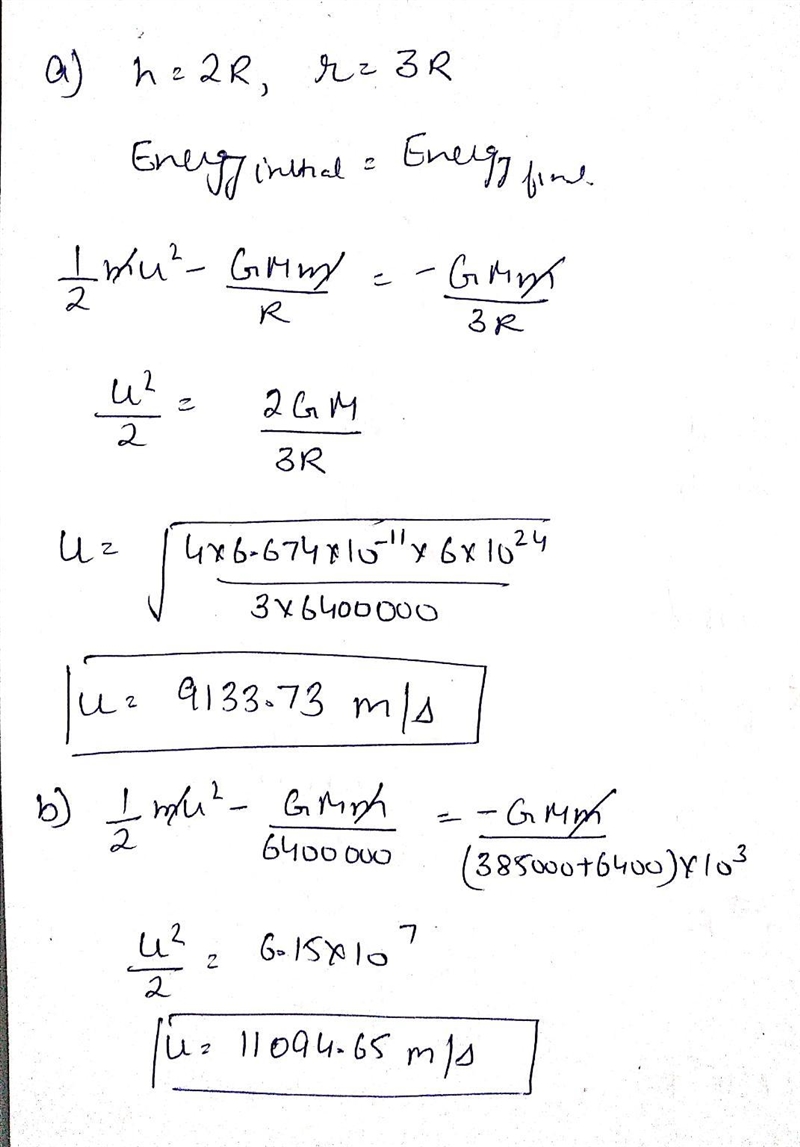 a) h = 2R, r = 3R
Energy initial = Energy final
1/2 mu² - GMm/R = -GMm/3R
u²/2 = 2GM/3R
u = √(4×6.674×10⁻¹¹×6×10²⁴/3×6400000)
u = 9133.73 m/s
b) 1/2 mu² - GMm/6400000 = -GMm/(385000+6400)×10³
u²/2 = 6.15×10⁷
u = 11094.65 m/s